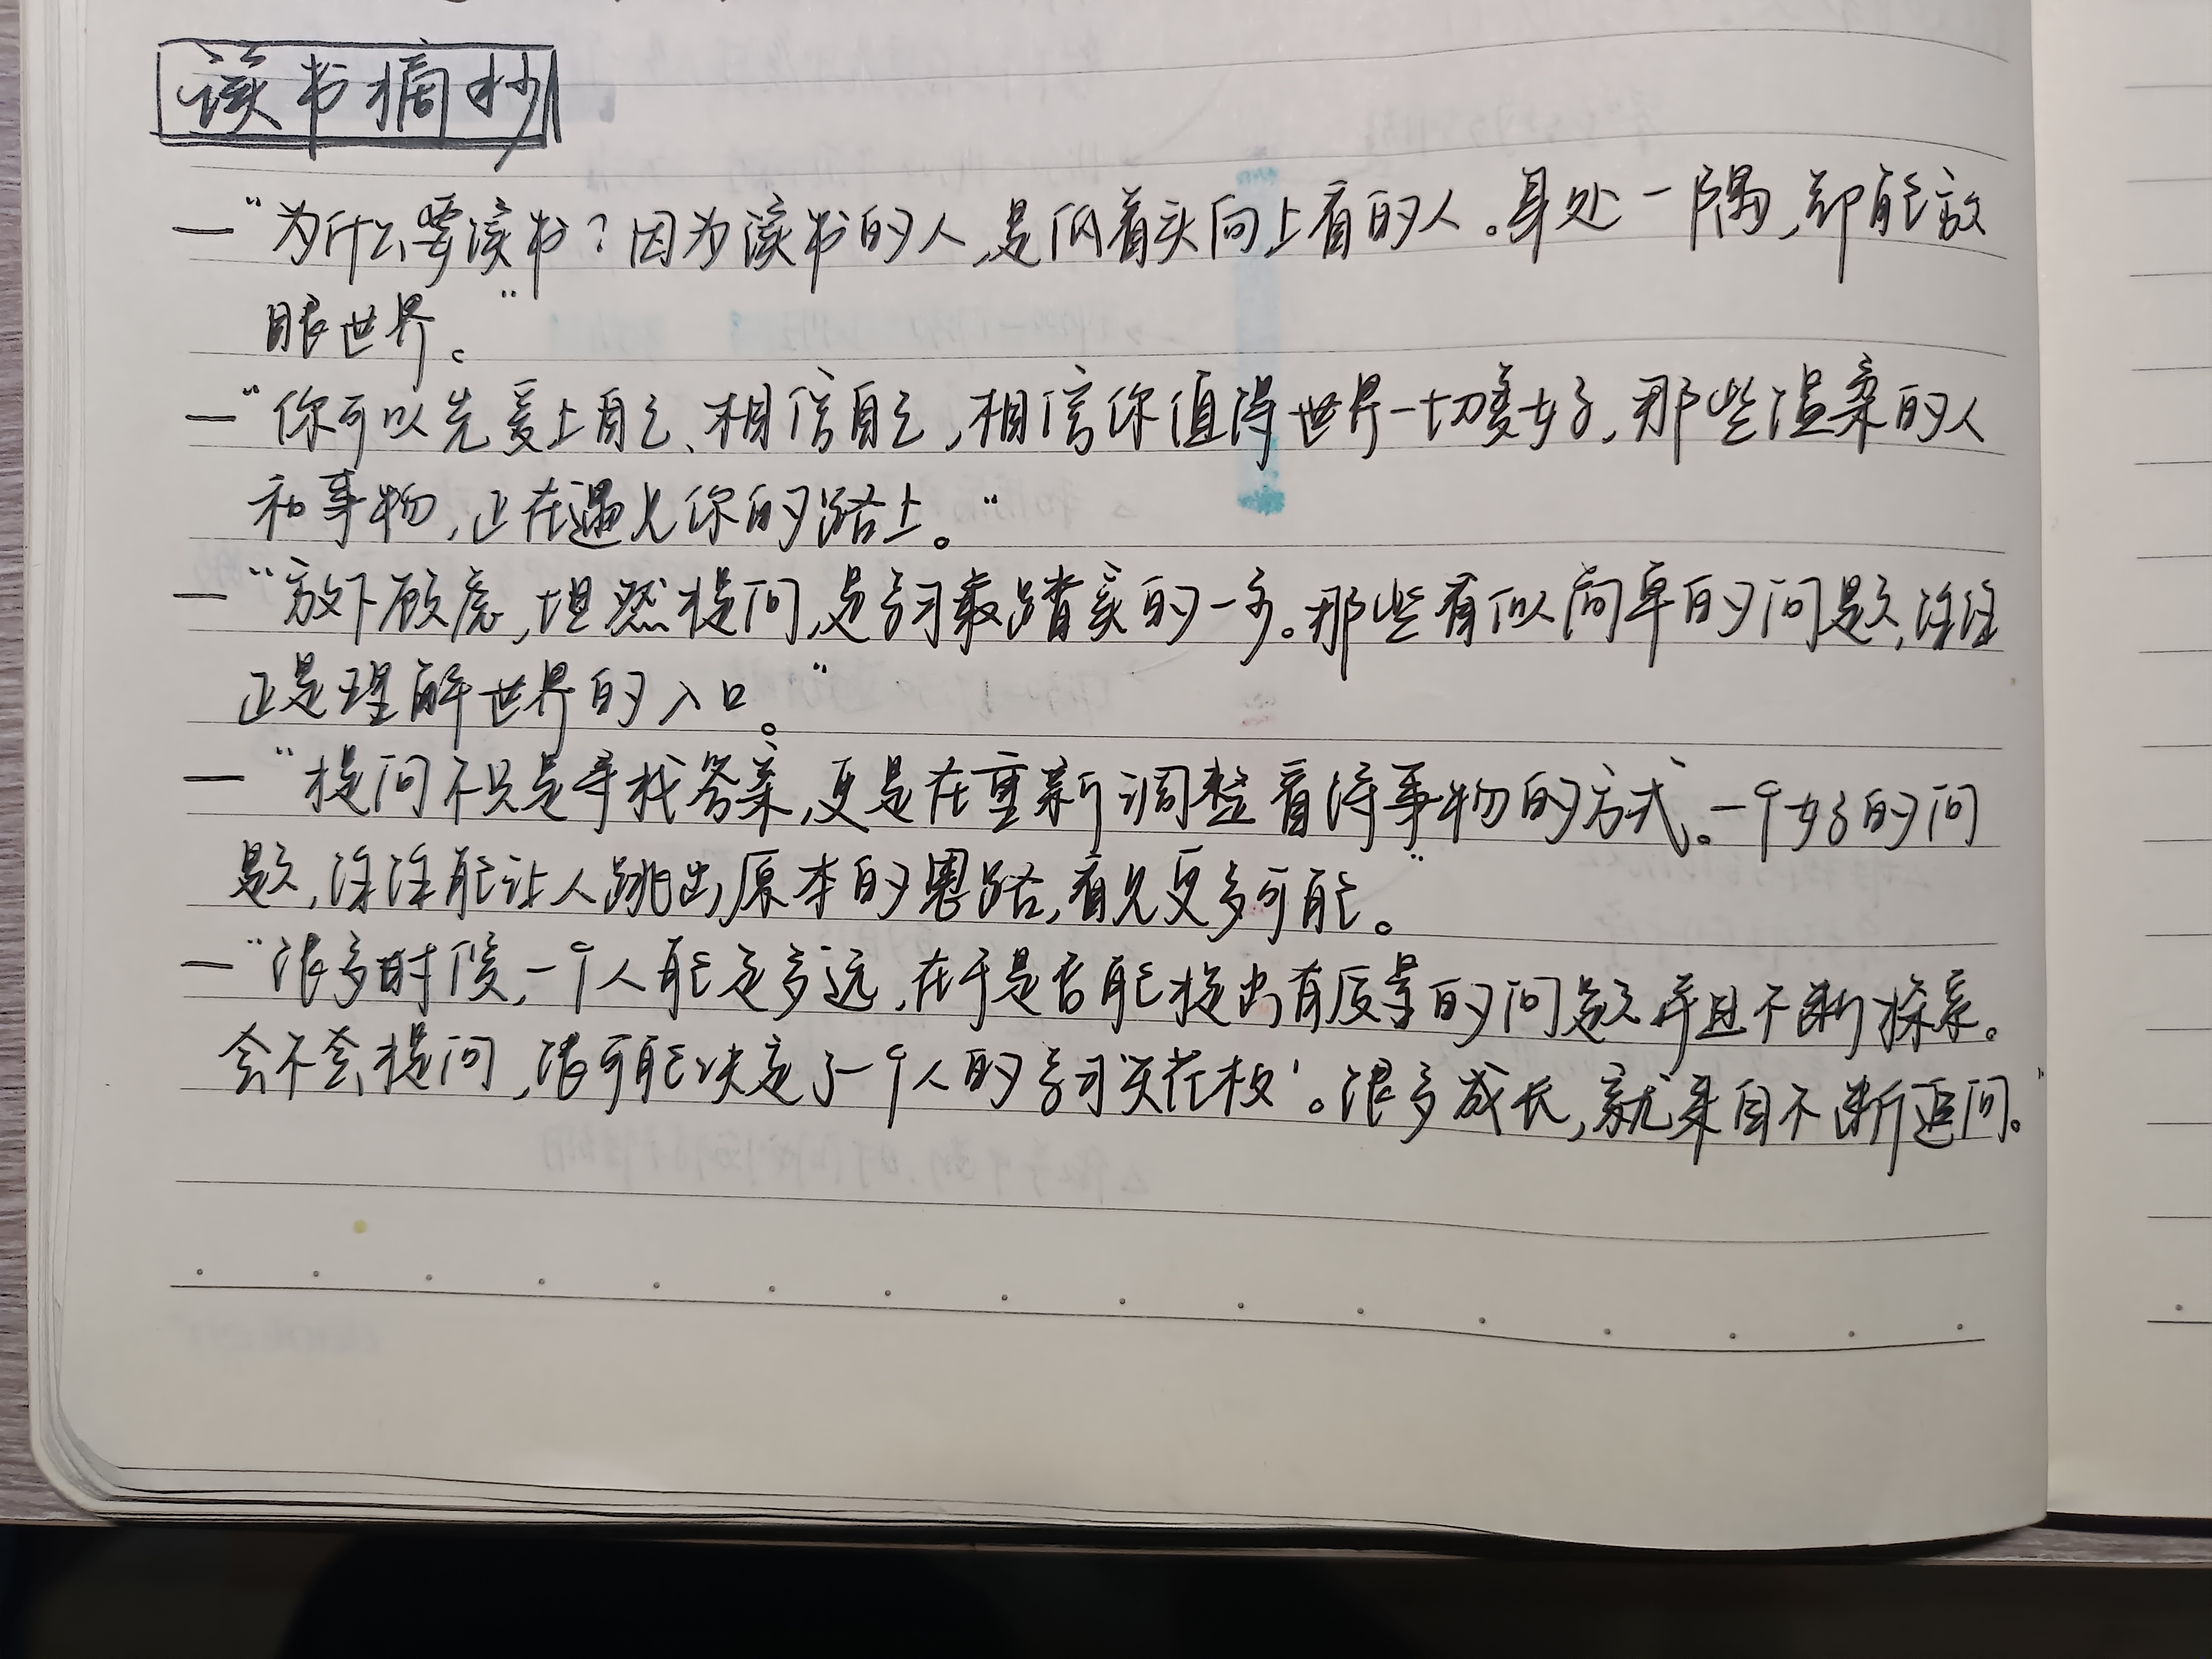 读书摘抄
—“为什么要读书？因为读书的人，是低着头向上看的人。身处一隅，却能放
眼世界。”
—“你可以先爱上自己、相信自己，相信你值得世界一切美好，那些温柔的人
和事物，正在遇见你的路上。”
—“放下顾虑，坦然提问，是学习最踏实的一步。那些看似简单的问题，往往
正是理解世界的入口。”
—“提问不只是寻找答案，更是在重新调整看待事物的方式。一个好的问
题，往往能让人跳出原本的思路，看见更多可能。”
—“很多时候，一个人能走多远，在于是否能提出有质量的问题并且不断探索。
会不会提问，很可能决定了一个人的学习‘天花板’。很多成长，就来自不断追问。”